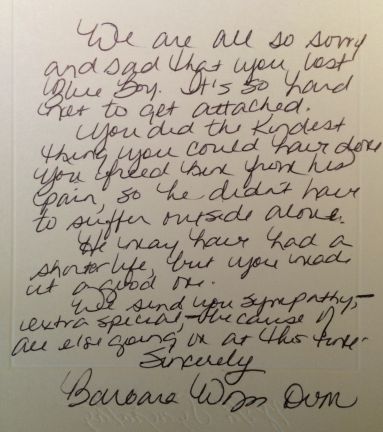 We are all so sorry
and sad that you lost
Blue Boy. It's so hard
not to get attached.
You did the Kindest
thing you could have done
you freed him from his
pain, so he didn't have
to suffer outside alone.
He may have had a
shorter life, but you made
it a good one.
We send you sympathy,-
extra special,-because of
all else going on at this time.
Sincerely
Barbara DVM